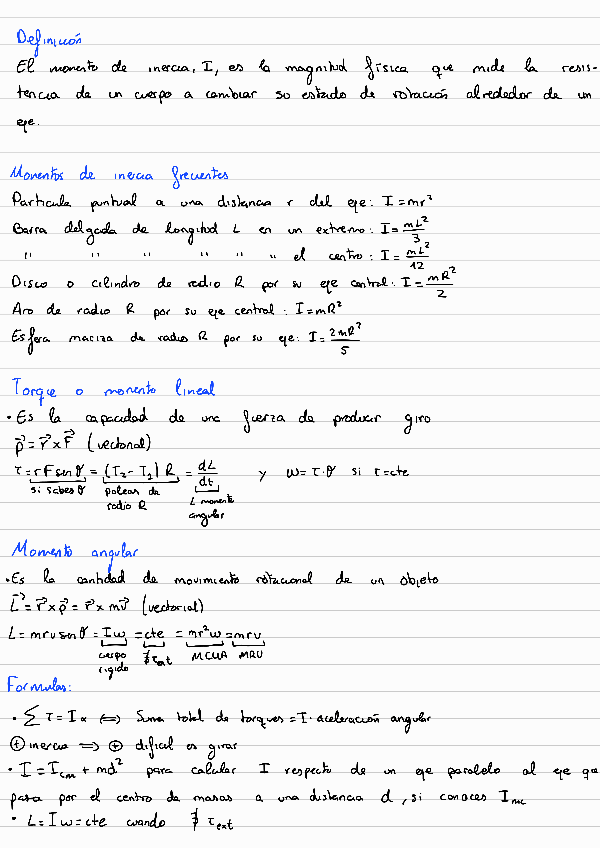 Definición
El momento de inercia, I, es la magnitud física que mide la resis-
tencia de un cuerpo a cambiar su estado de rotación alrededor de un
eje.
Momentos de inercia frecuentes
Partícula puntual a una distancia r del eje: I = mr²
Barra delgada de longitud L en un extremo: I = mL²/3
" " " " " " el centro: I = mL²/12
Disco o cilindro de radio R por su eje central: I = mR²/2
Aro de radio R por su eje central: I = mR²
Esfera maciza de radio R por su eje: I = 2mR²/5
Torque o momento lineal
• Es la capacidad de una fuerza de producir giro
p⃗ = r⃗ x F⃗ (vectorial)
τ = rFsenθ = (T₂ - T₁) R = dL/dt y w = τ·θ si τ = cte
si sabes θ poleas de radio R L momento angular
Momento angular
• Es la cantidad de movimiento rotacional de un objeto
L⃗ = r⃗ x p⃗ = r⃗ x mv⃗ (vectorial)
L = mrv senθ = Iw = cte = mr²w = mrv
cuerpo rigido ∄ τext MCUA MRU
Formulas:
• ∑ τ = I α ⟺ Suma total de torques = I · aceleración angular
⊕ inercia ⟹ ⊕ dificil es girar
• I = Icm + md² para calcular I respecto de un eje paralelo al eje que
pasa por el centro de masas a una distancia d, si conoces Imc
• L = Iw = cte cuando ∄ τext